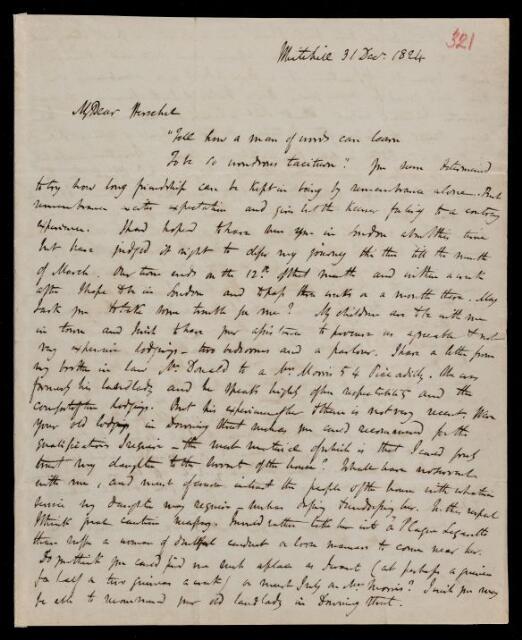 321
Mutehill 31 Dec. 1824
My Dear Herschel
"Tell how a man of words can learn
To be so wondrous taciturn? You seem determined
to try how long friendship can be kept in being by remembrance alone. But
remembrance excites expectation and gives but the keener feeling to a contrary
experience. I had hoped to have seen you in London about this time
but have judged it right to defer my journey thither till the month
of March. Our term ends on the 12th of that month and within a week
after I hope to be in London and to pass three weeks or a month there. May
I ask you to take some trouble for me? My children are to be with me
in town and I wish to have your assistance to procure us agreeable & not
very expensive lodgings - two bedrooms and a parlour. I have a letter from
my brother in law Mr. Donald to a Mrs. Morris 54 Piccadilly. She was
formerly his landlady and he speaks highly of her respectability and the
comfort of her lodgings. But his experience of her & them is not very recent. Was
your old lodging in Downing Street such as you could recommend for the
qualifications I require - the most material of which is that I could
trust my daughter to the Servant of the house? I shall have no servant
with me, and must of course intrust the people of the house with whatever
service my daughter may require - in dressing & undressing her. In this respect
I think great caution necessary. I would rather take her into a Plague Lazaretto
than suffer a woman of doubtful conduct or loose manners to come near her.
Do you think you could find me such a place as I want (at perhaps a guinea
& a half or two guineas a week) or must I rely on Mrs. Morris? I wish you may
be able to recommend your old landlady in Downing Street.